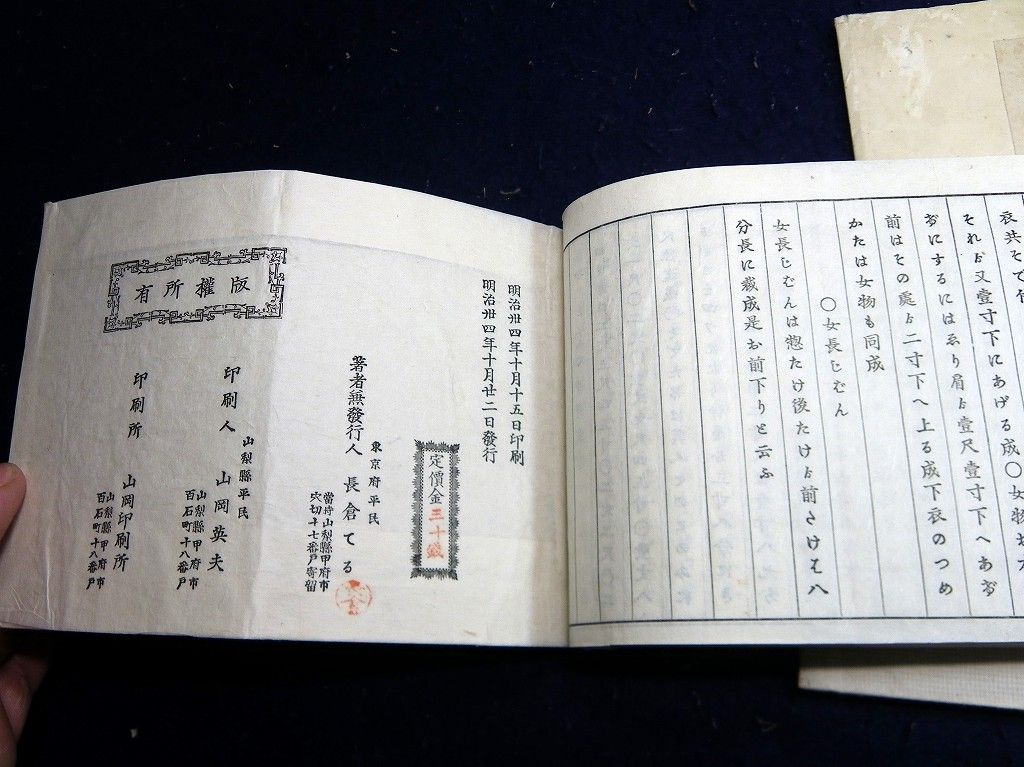 それゟ又壹寸下にあげる成〇女物
ぢにするにはゑり肩ゟ壹尺壹寸下へあぢ
前はその處ゟ二寸下へ上る成下衣のつめ
かたは女物も同成
〇女長じむん
女長じむんは惣たけ後たけゟ前さけえハ
分長に裁成是お前下りと云ふ
明治卅四年十月十五日印刷
明治卅四年十月廿二日發行
定價金三十錢
東京府平民
著者兼發行人 長倉てる
當時山梨縣甲府市
穴切十七番戸寄留
山梨縣平民
印刷人 山岡英夫
山梨縣甲府市
百石町十八番戸
印刷所 山岡印刷所
山梨縣甲府市
百石町十八番戸
版權所有